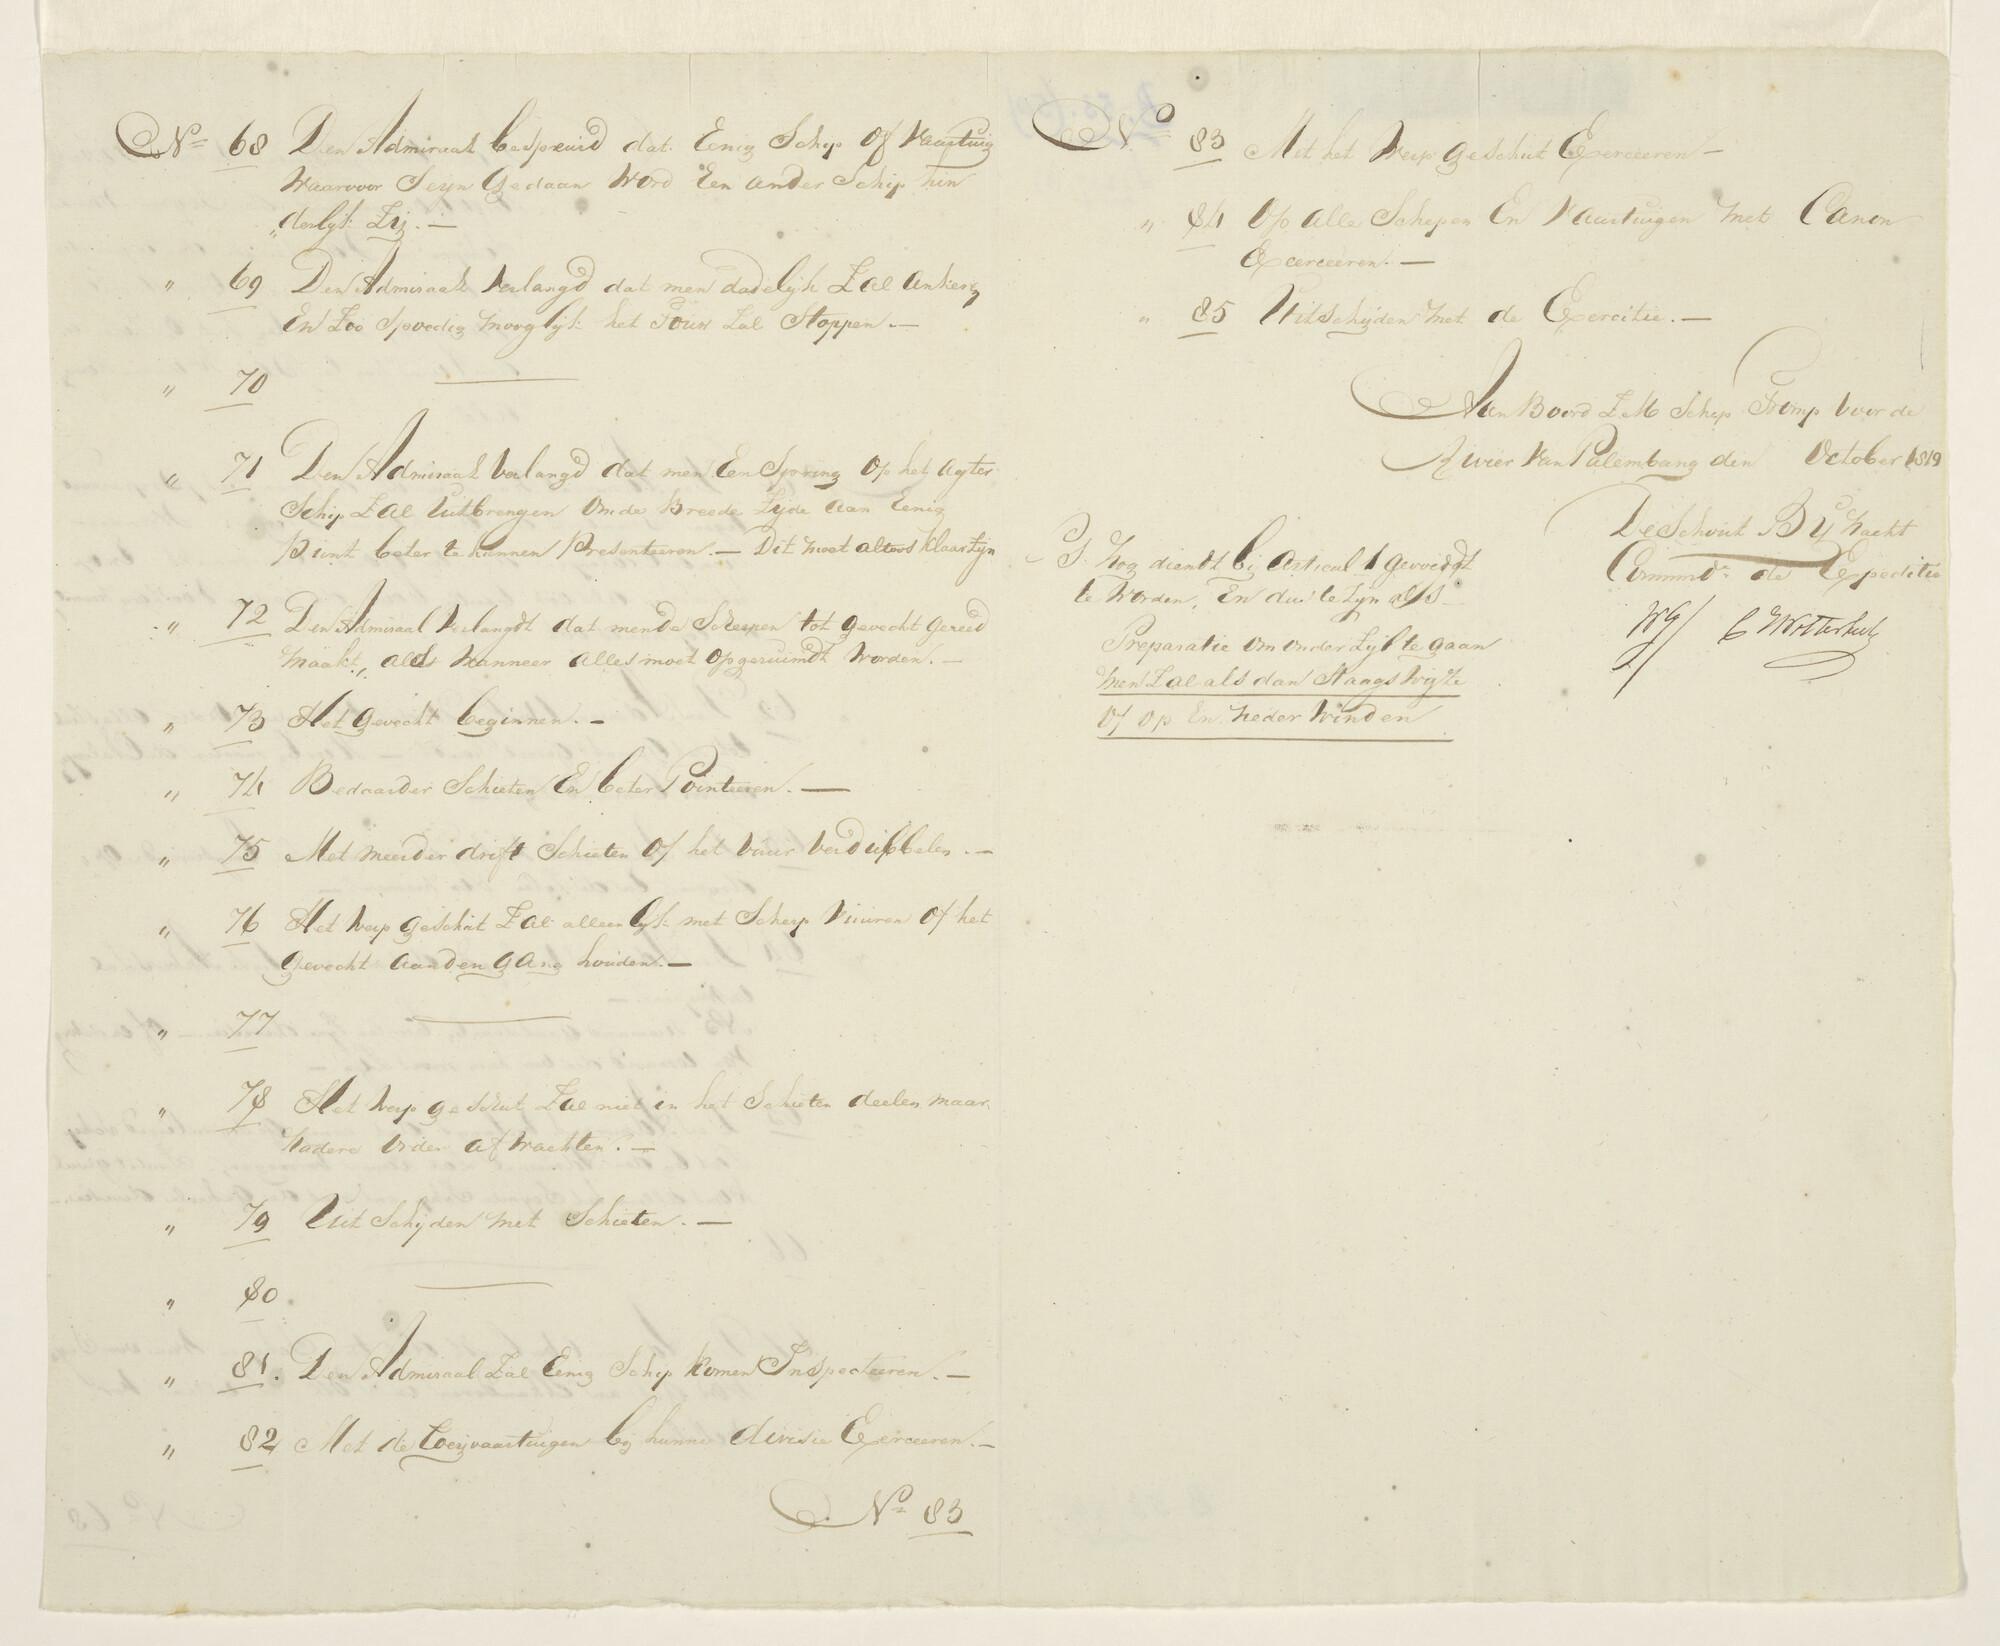 No 68 Den Admiraal bespeurd dat Eenig Schip Of Vaartuig
Waarvoor Seyn Gedaan Word Een ander Schip hin
„derlijk Lig. —
„ 69 Den Admiraal Verlangd dat men dadelijk Zal Ankeren
En Zoo Spoedig mooglijk het Touw Zal Stoppen. —
„ 70 —
„ 71 Den Admiraal Verlangd dat men Een Spring Op het Agter
Schip Zal Uitbrengen Om de Breede Zyde aan Eenig
Punt beter te kunnen Presenteeren. — Dit moet altoos Klaar Zyn
„ 72 Den Admiraal Verlangdt dat men de Scheepen tot gevecht gereed
maakt, als Wanneer alles moet Opgeruimdt Worden. —
„ 73 Het Gevecht beginnen. —
„ 74 Bedaarder Schieten En beter Pointeeren. —
„ 75 Met meerder drift Schieten Of het Vuur Verdubbelen. —
„ 76 Het Werp geschut Zal alleenlijk met Scherp Vuuren Of het
Gevecht aan den Gang houden. —
„ 77 —
„ 78 Het Werp geschut Zal niet in het Schieten deelen maar
Nadere Order afwachten. —
„ 79 Uit Schyden met Schieten. —
„ 80 —
„ 81. Den Admiraal Zal Eenig Schip komen Inspecteeren. —
„ 82 Met de Roeyvaartuigen bij hunne divisie Exerceeren. —
No 83
No 83 Met het Werp geschut Exerceeren —
„ 84 Op alle Schepen En Vaartuigen met Canon
Exerceeren. —
„ 85 Uitschyden met de Exercitie. —
Aan Boord Z M Schip Tromp voor de
Rivier Van Palembang den October 1819
De Schout By Nacht
Commdt de Expeditie
Wg/ C Wolterbeek
P.S. Nog diendt bij Articul 1 gevoegdt
te Worden, En dus te Zyn als
Preparatie om onder Zyl te gaan
men Zal als dan Staags Wyze
Of Op En Neder Winden